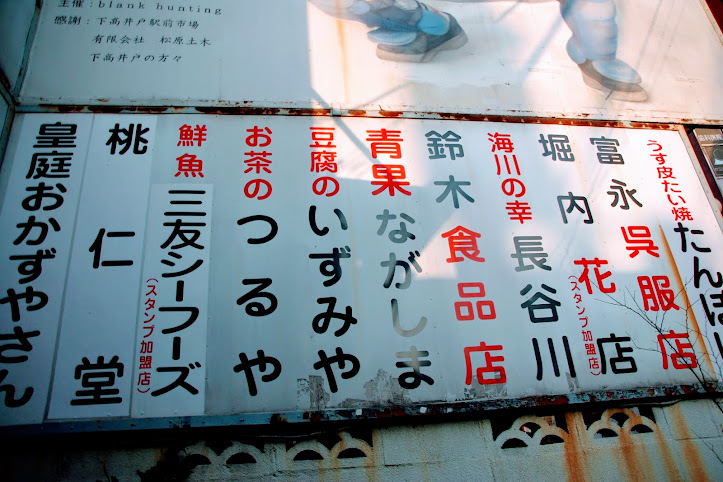 主催：blank hunting
感謝：下高井戸駅前市場
有限会社 松原土木
下高井戸の方々
うす皮たい焼 たんぼ
富永呉服店
堀内花店
(スタンプ加盟店)
海川の幸 長谷川
鈴木食品店
青果ながしま
豆腐のいずみや
お茶のつるや
鮮魚 三友シーフーズ
(スタンプ加盟店)
桃仁堂
皇庭おかずやさん